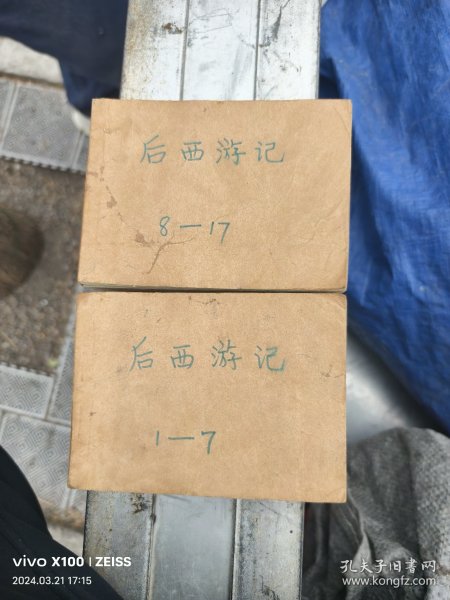 后西游记
8—17
后西游记
1—7
vivo X100 | ZEISS
2024.03.21 17:15
孔夫子旧书网
www.kongfz.com